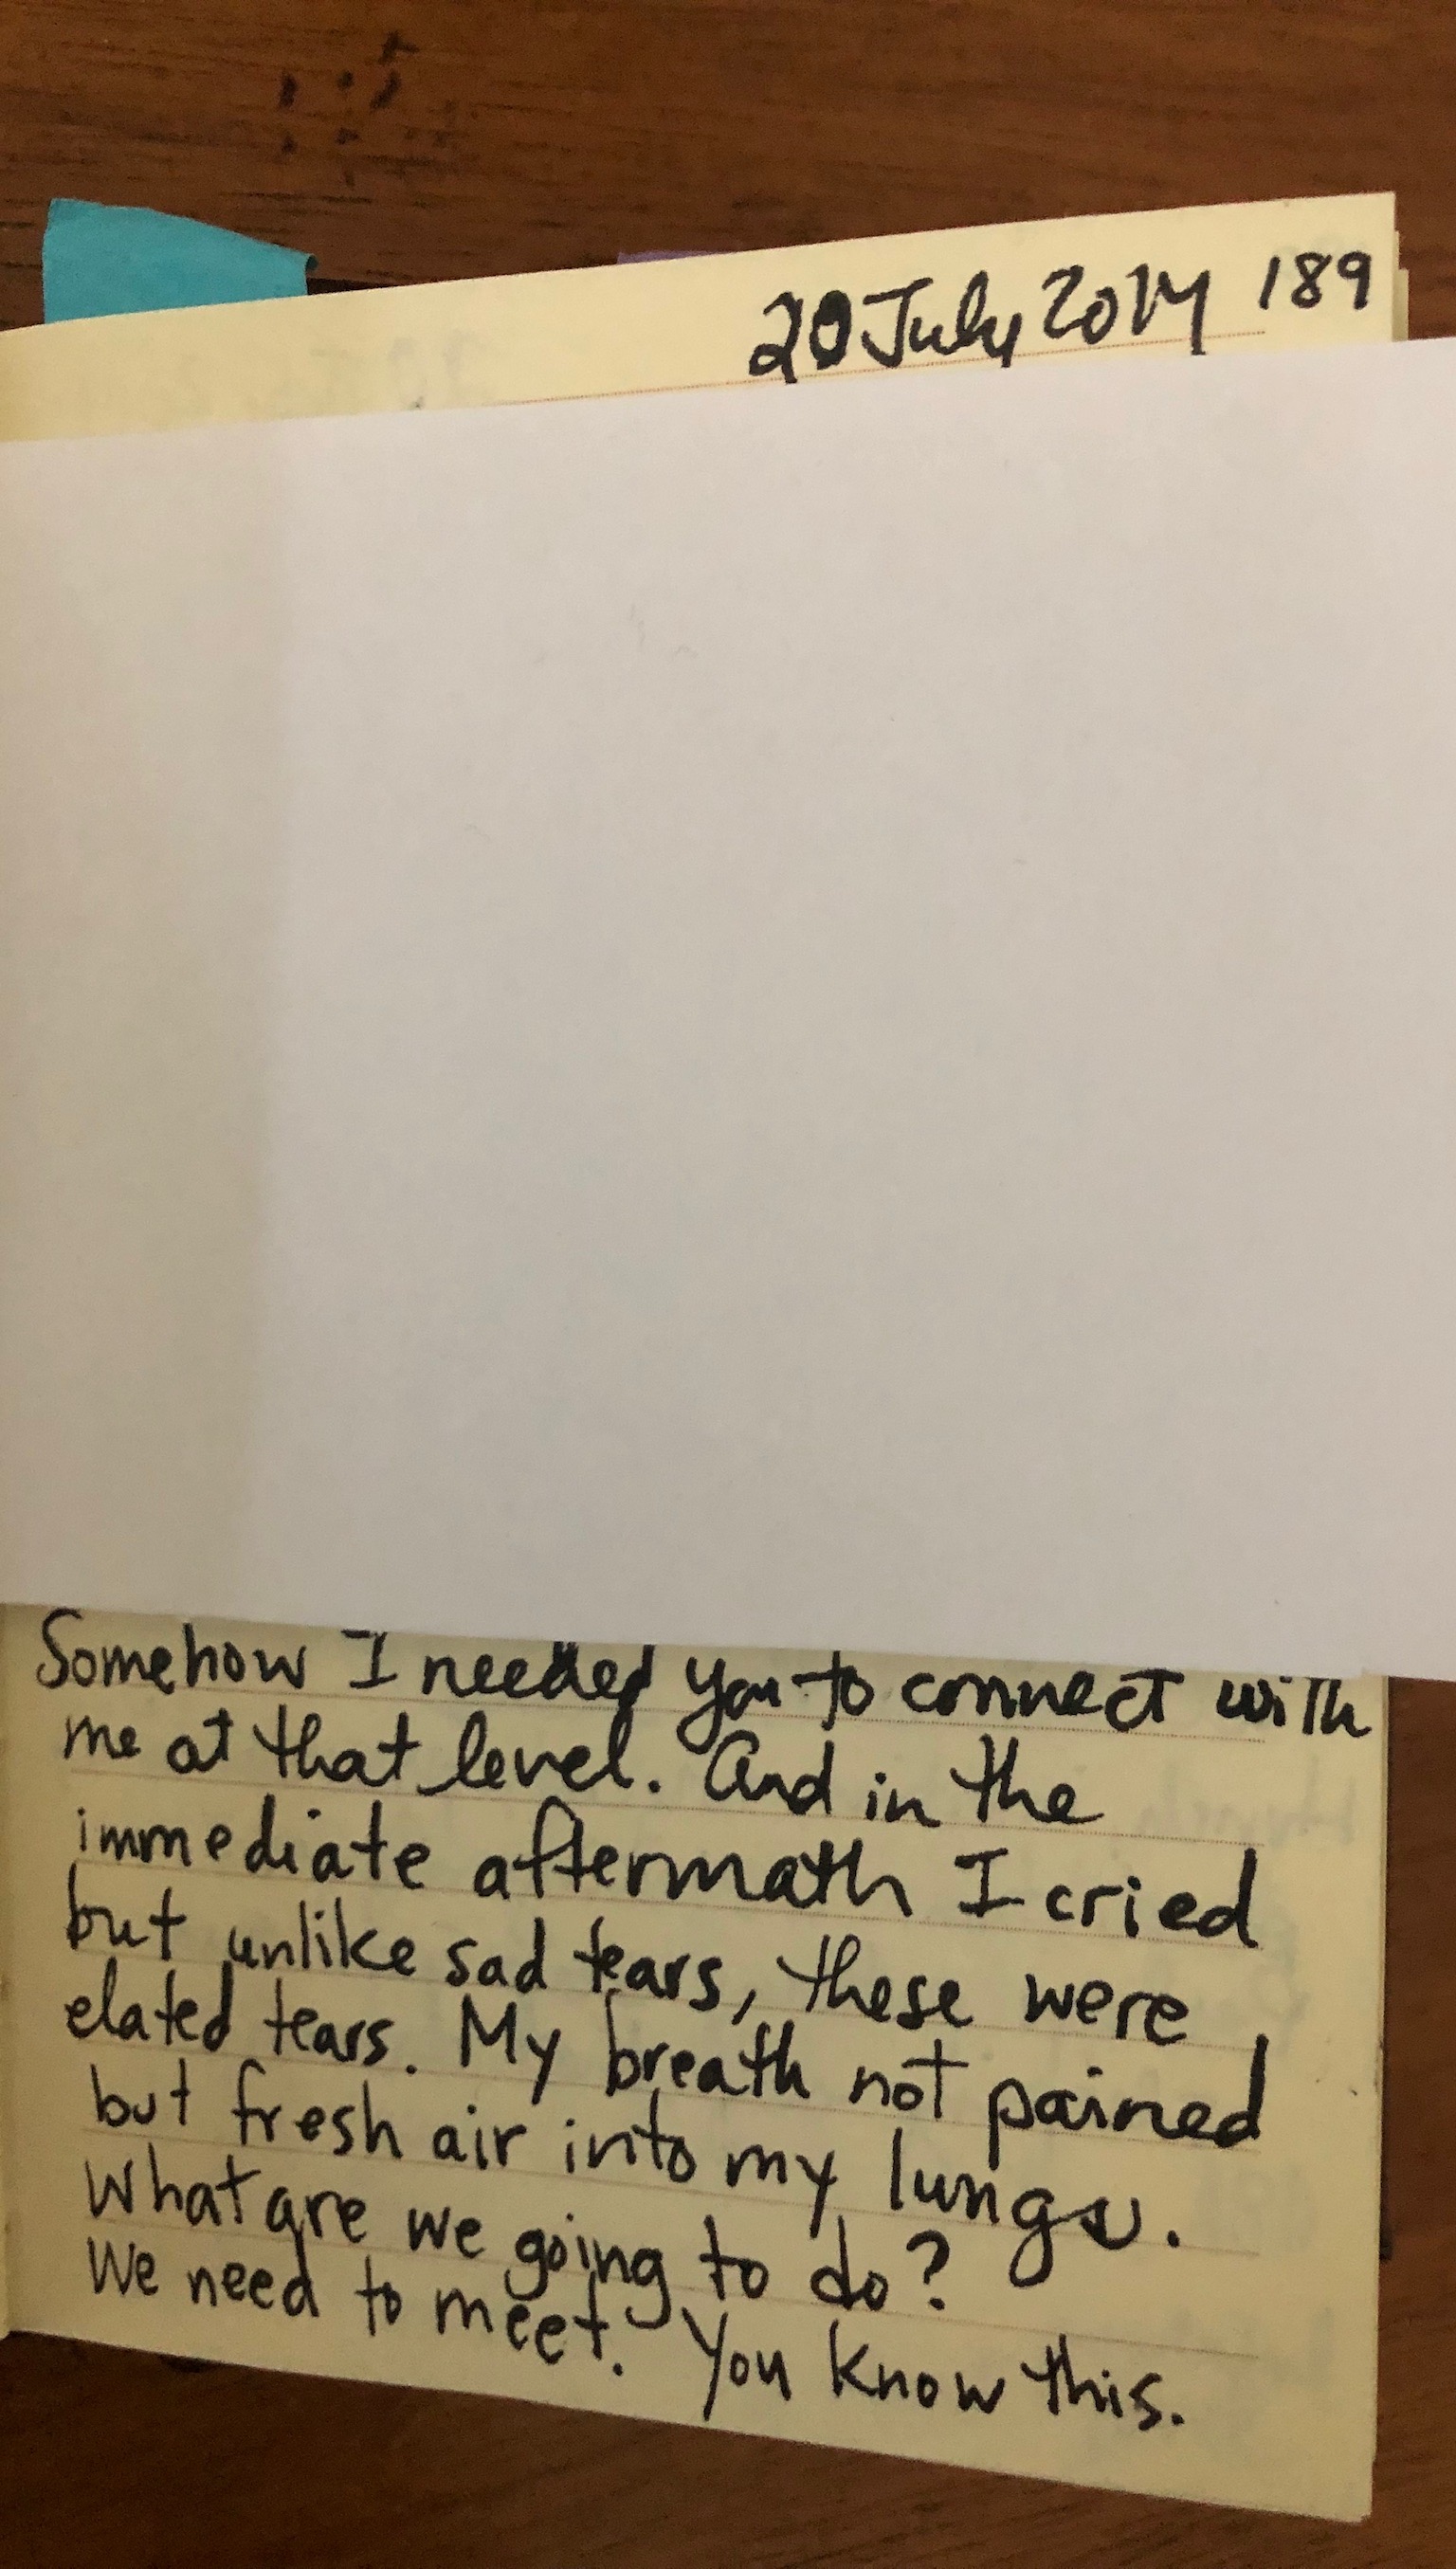 20 July 2014 189
Somehow I needed you to connect with
me at that level. And in the
immediate aftermath I cried
but unlike sad tears, these were
elated tears. My breath not pained
but fresh air into my lungs.
What are we going to do?
We need to meet. You know this.